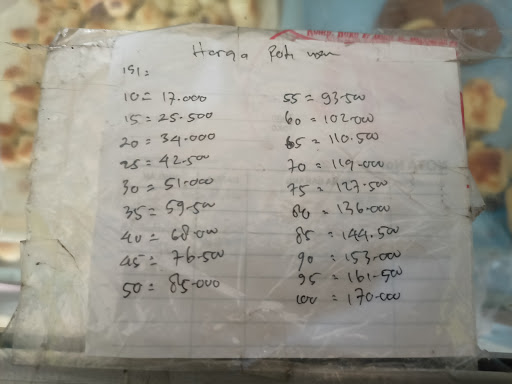 Harga Roti
isi =
10 = 17.000
15 = 25.500
20 = 34.000
25 = 42.500
30 = 51.000
35 = 59.500
40 = 68.000
45 = 76.500
50 = 85.000
55 = 93.500
60 = 102.000
65 = 110.500
70 = 119.000
75 = 127.500
80 = 136.000
85 = 144.500
90 = 153.000
95 = 161.500
100 = 170.000